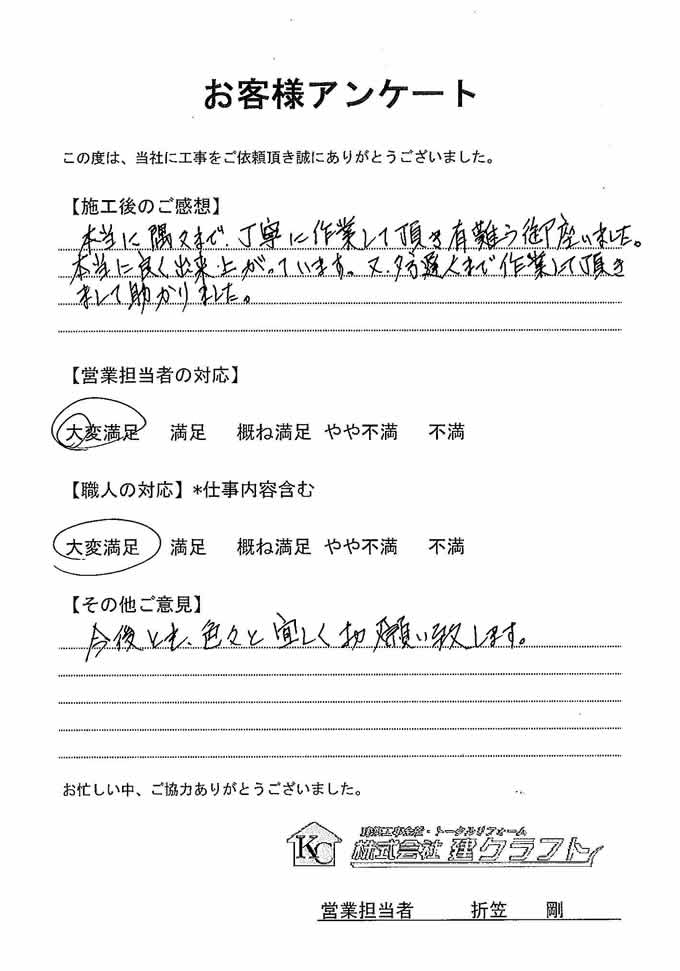 お客様アンケート
この度は、当社に工事をご依頼頂き誠にありがとうございました。
【施工後のご感想】
本当に隅々まで、丁寧に作業して頂き有難う御座いました。
本当に良く出来上がっています。又、夕方遅くまで作業して頂き
まして助かりました。
【営業担当者の対応】
大変満足 満足 概ね満足 やや不満 不満
【職人の対応】*仕事内容含む
大変満足 満足 概ね満足 やや不満 不満
【その他ご意見】
今後とも、色々と宜しくお願い致します。
お忙しい中、ご協力ありがとうございました。
建築工事全般・トータルリフォーム
KC 株式会社 建クラフト
営業担当者 折笠 剛